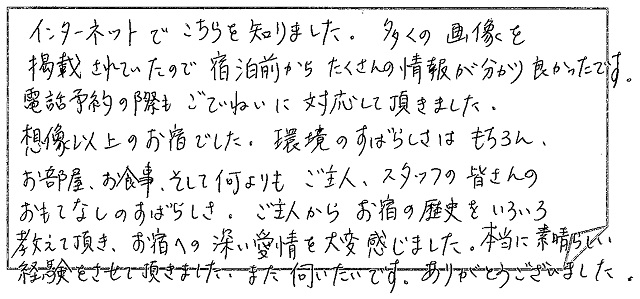 インターネットでこちらを知りました。多くの画像を
掲載されていたので宿泊前からたくさんの情報が分かり良かったです。
電話予約の際もごていねいに対応して頂きました。
想像以上のお宿でした。環境のすばらしさはもちろん、
お部屋、お食事、そして何よりもご主人、スタッフの皆さんの
おもてなしのすばらしさ。ご主人からお宿の歴史をいろいろ
教えて頂き、お宿への深い愛情を大変感じました。本当に素晴らしい
経験をさせて頂きました。また伺いたいです。ありがとうございました。